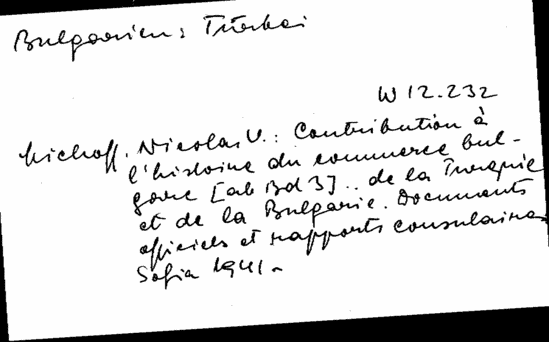 Bulgarien: Türkei
W 12.232
Michoff, Nicolas V.: Contribution à
l'histoire du commerce bul-
gare [ab Bd 3] .. de la Turquie
et de la Bulgarie. Documents
officiels et rapports consulaires
Sofia 1941-